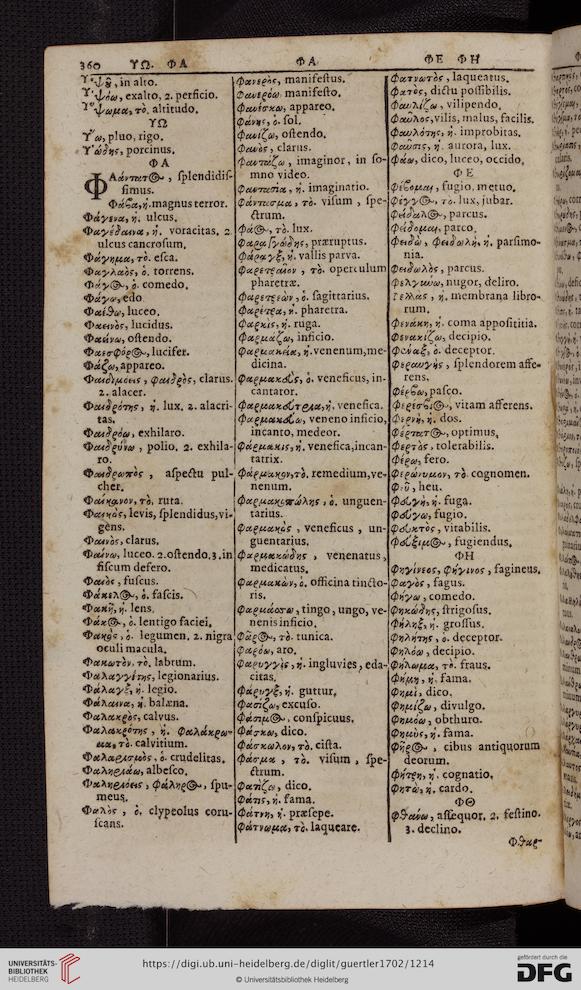 360 ΥΩ. ΦΑ ΦΑ ΦΕ ΦΗ
Ὑψοῦ, in alto.
Ὑψόω, exalto, 2. perficio.
Ὕψωμα, τὸ. altitudo.
ΥΩ
Ὕω, pluo, rigo.
Ὑώδης, porcinus.
ΦΑ
ΦΑάντατ@, splendidis-
simus.
Φάβα, ἡ. magnus terror.
Φάγαινα, ἡ. ulcus.
Φαγέδαινα, ἡ. voracitas, 2.
ulcus cancrosum.
Φάγημα, τὸ. esca.
ὁ. torrens.
ὁ. comedo.
Φάγω, edo.
Φαέθω, luceo.
Φαεινὸς, lucidus.
Φαείνω, ostendo.
Φαεσφόρ@, lucifer.
Φάζω, appareo.
Φαιδιμόεις, φαιδρὸς, clarus.
2. alacer.
Φαιδρότης, ἡ. lux, 2. alacri-
tas.
Φαιδρόω, exhilaro.
Φαιδρύνω, polio, 2. exhila-
ro.
Φαιδρωπὸς, aspectu pul-
cher.
τὸ. ruta.
Φαικὸς, levis, splendidus, vi-
gens.
Φαινὸς, clarus.
Φαίνω, luceo. 2. ostendo, 3. in
fiscum defero.
Φαιὸς, fuscus.
Φάκελ@, ὁ. fascis.
Φακῆ, ἡ. lens.
Φάκ@, ὁ. lentigo faciei.
Φακὸς, ὁ. legumen, 2. nigra
oculi macula.
Φακωτὸν, τὸ. labrum.
Φαλαγγίτης, legionarius.
Φάλαγξ, ἡ. legio.
Φάλαινα, ἡ. balæna.
Φαλακρὸς, calvus.
Φαλακρότης, ἡ. Φαλάκρω-
μα, τὸ. calvitium.
Φαλαρισμὸς, ὁ. crudelitas.
Φαληριάω, albesco.
Φαληριόεις, Φάληρ@, spu-
meus.
Φαλὸς, ὁ. clypeolus coru-
scans.
Φανερὸς, manifestus.
Φανερόω, manifesto.
Φανίσκω, appareo.
Φάνης, ὁ. sol.
Φανίζω, ostendo.
Φανὸς, clarus.
Φαντάζω, imaginor, in so-
mno video.
Φαντασία, ἡ. imaginatio.
Φάντασμα, τὸ. visum, spe-
ctrum.
Φά@, τὸ. lux.
Φαραγγώδης, præruptus.
Φάραγξ, ἡ. vallis parva.
Φαρετραῖον, τὸ. operculum
pharetræ.
Φαρετρεὼν, ὁ. sagittarius.
Φαρέτρα, ἡ. pharetra.
Φαρκὶς, ἡ. ruga.
Φαρμάζω, inficio.
Φαρμακεία, ἡ. venenum, me-
dicina.
Φαρμακεὺς, ὁ. veneficus, in-
cantator.
Φαρμακεύτρια, ἡ. venefica.
Φαρμακεύω, veneno inficio,
incanto, medeor.
Φαρμακὶς, ἡ. venefica, incan-
tatrix.
Φάρμακον, τὸ. remedium, ve-
nenum.
Φαρμακοπώλης, ὁ. unguen-
tarius.
Φαρμακὸς, veneficus, un-
guentarius.
Φαρμακώδης, venenatus,
medicatus.
Φαρμακὼν, ὁ. officina tincto-
ris.
Φαρμάσσω, tingo, ungo, ve-
nenis inficio.
Φᾶρ@, τὸ. tunica.
Φαρόω, aro.
Φαρυγγὶς, ἡ. ingluvies, eda-
citas.
Φάρυγξ, ἡ. guttur.
Φασίζω, excuso.
Φάσιμ@, conspicuus.
Φάσκω, dico.
Φάσκωλον, τὸ. cista.
Φάσμα, τὸ. visum, spe-
ctrum.
Φατίζω, dico.
Φάτις, ἡ. fama.
Φάτνη, ἡ. præsepe.
Φάτνωμα, τὸ. laqueare.
Φατνωτὸς, laqueatus.
Φατὸς, dictu possibilis.
Φαυλίζω, vilipendo.
Φαῦλος, vilis, malus, facilis.
Φαυλότης, ἡ. improbitas.
Φαῦσις, ἡ. aurora, lux.
Φάω, dico, luceo, occido.
ΦΕ
Φέβομαι, fugio, metuo.
Φέγγ@, τὸ. lux, jubar.
Φειδαλ@, parcus.
Φείδομαι, parco.
Φειδὼ, Φειδωλὴ, ἡ. parsimo-
nia.
Φειδωλὸς, parcus.
nugor, deliro.
ἡ. membrana libro-
rum.
Φενάκη, ἡ. coma appositítia.
Φενακίζω, decipio.
Φέναξ, ὁ. deceptor.
Φεραυγὴς, splendorem affe-
rens.
Φέρβω, pasco.
Φερέσβι@, vitam afferens.
Φερνὴ, ἡ. dos.
Φέρτατ@, optimus.
Φερτὸς, tolerabilis.
Φέρω, fero.
Φερώνυμον, τὸ. cognomen.
Φεῦ, heu.
Φευγὴ, ἡ. fuga.
Φεύγω, fugio.
Φευκτὸς, vitabilis.
Φεύξιμ@, fugiendus.
ΦΗ
Φηγίνεος, Φήγινος, fagineus.
Φαγὸς, fagus.
Φήγω, comedo.
Φηκώδης, strigosus.
Φήληξ, ἡ. grossus.
Φηλήτης, ὁ. deceptor.
Φηλόω, decipio.
Φήλωμα, τὸ. fraus.
Φήμη, ἡ. fama.
Φημὶ, dico.
Φημίζω, divulgo.
Φημόω, obthuro.
Φημὺς, ἡ. fama.
Φῆρ@, cibus antiquorum
deorum.
Φήτρη, ἡ. cognatio.
Φητὼ, ἡ. cardo.
ΦΘ
Φθάνω, assequor, 2. festino.
3. declino.
Φθαρ-
UNIVERSITÄTS-
BIBLIOTHEK
HEIDELBERG
https://digi.ub.uni-heidelberg.de/diglit/guertler1702/1214
© Universitätsbibliothek Heidelberg
gefördert durch die
DFG